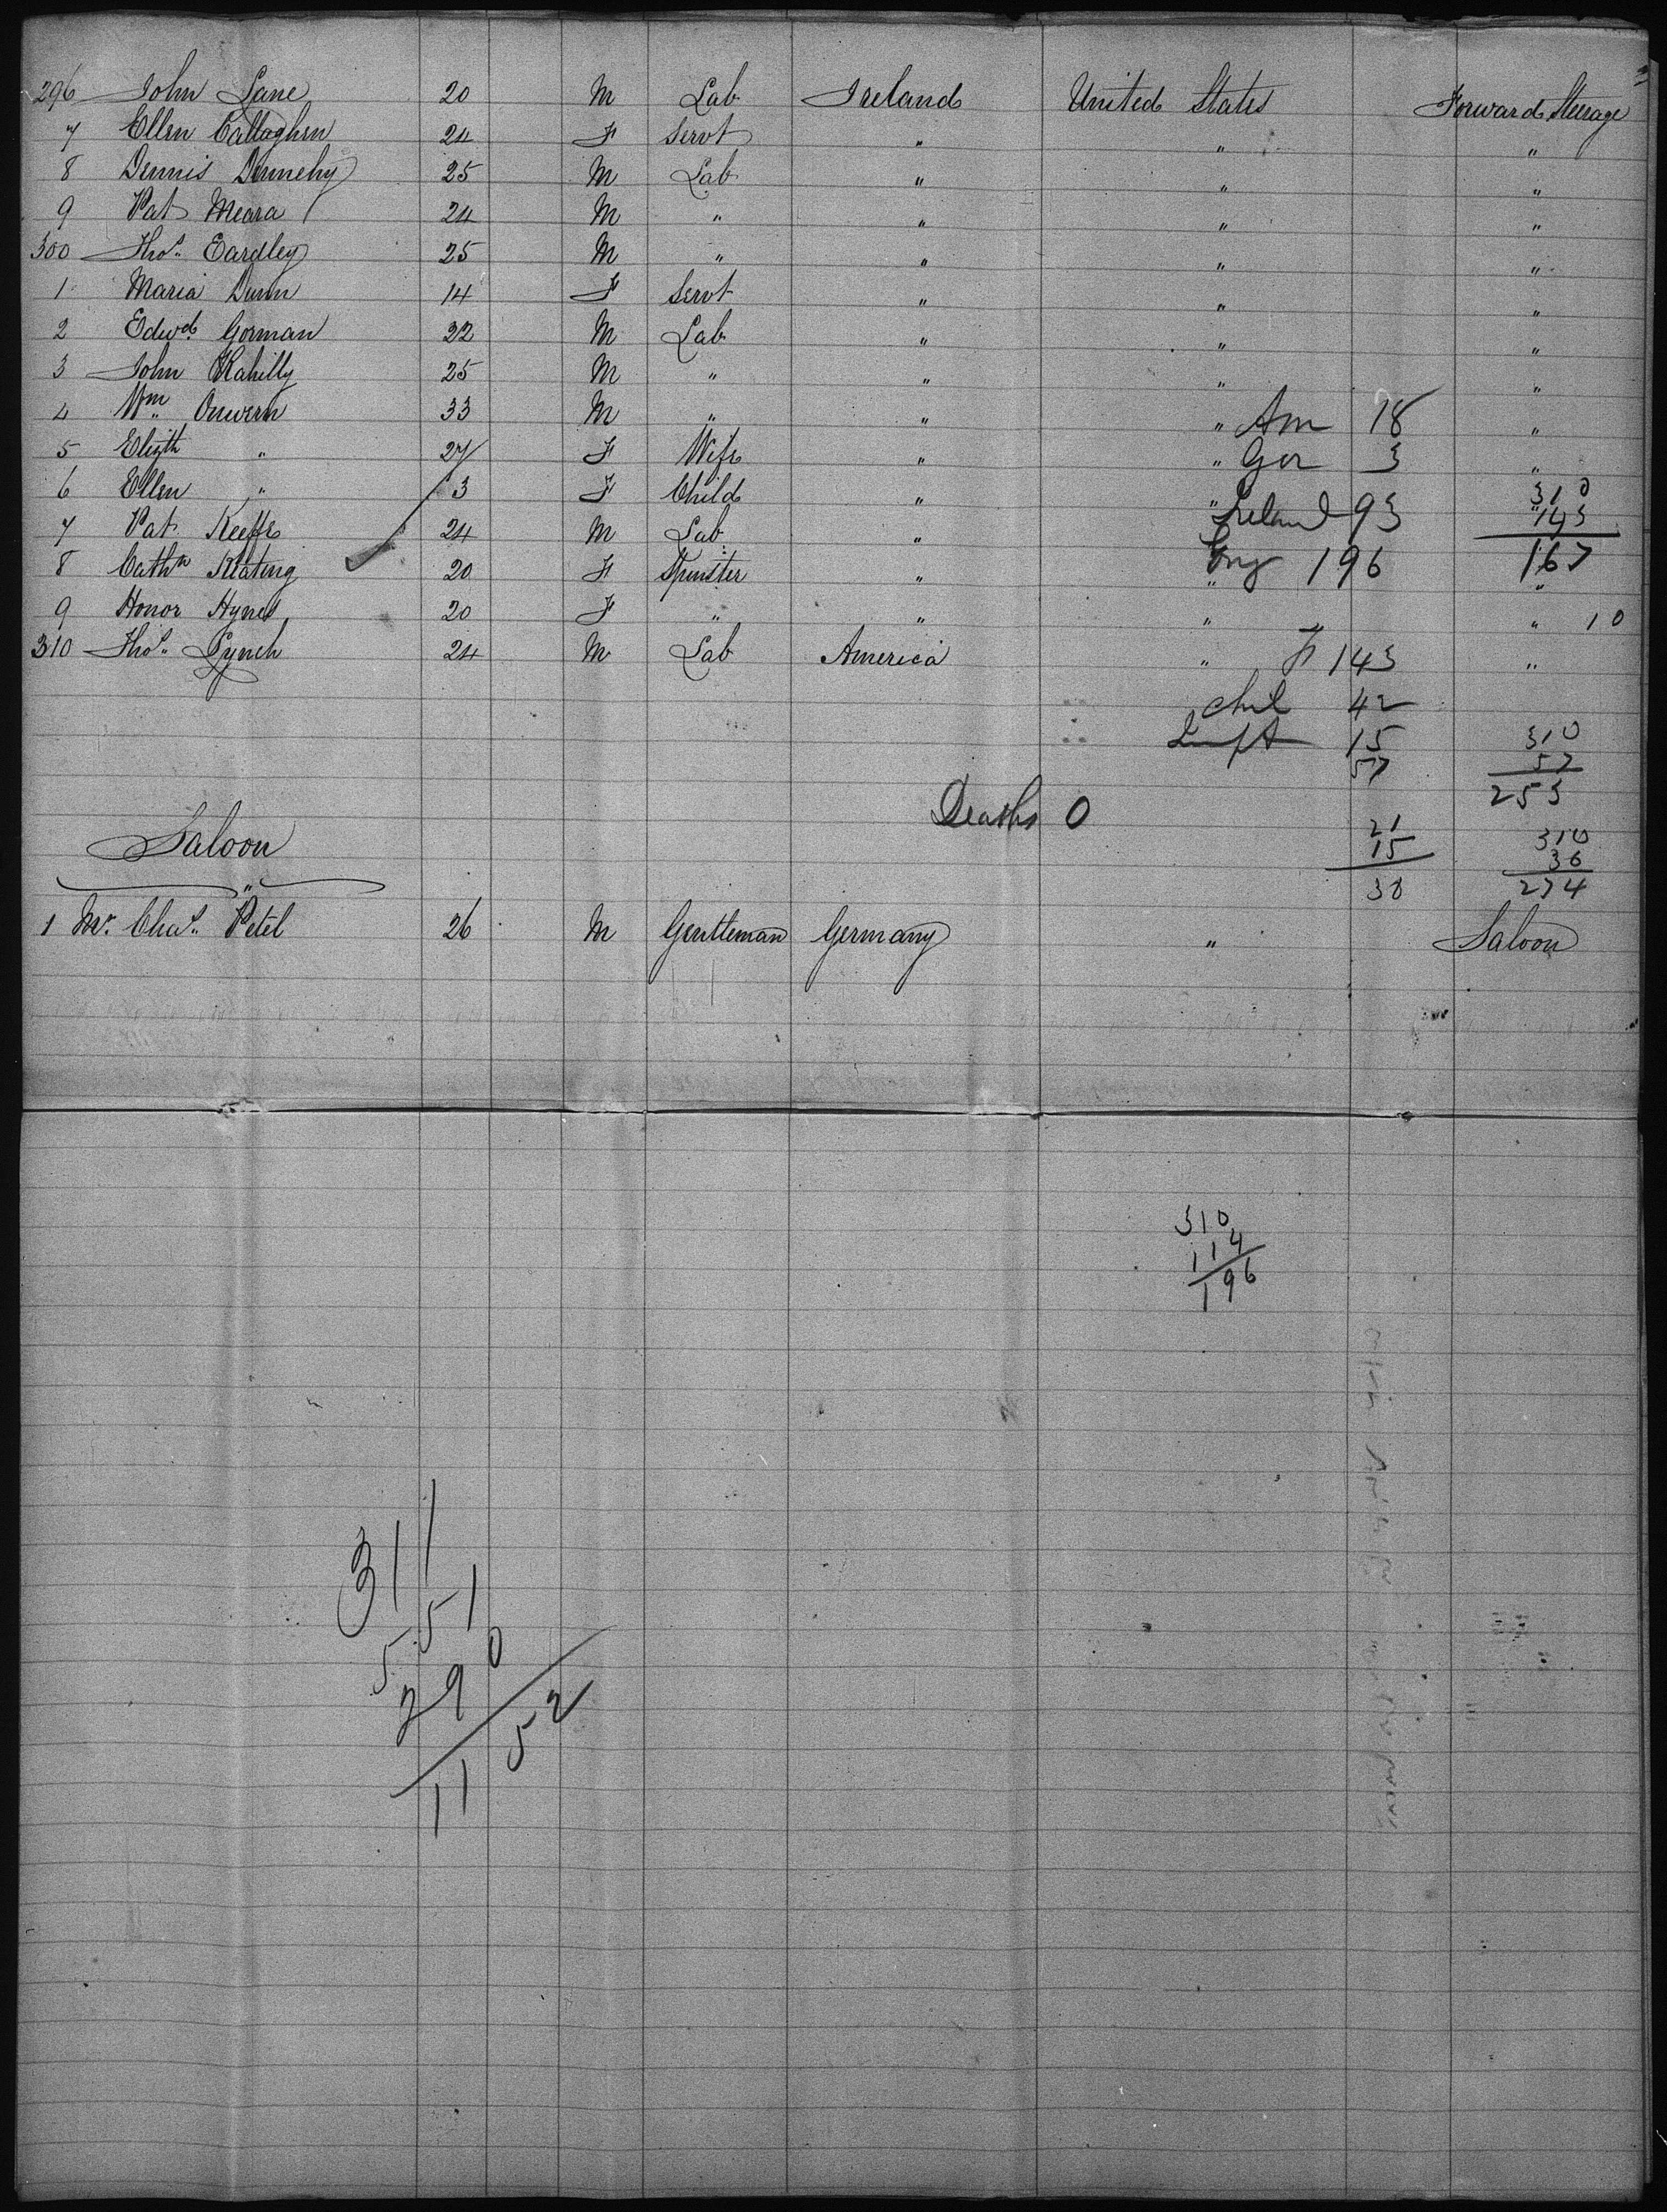 296 John Lane 20 M Lab Ireland United States Forward Steerage
7 Ellen Callaghen 24 F Servt " " "
8 Dennis Dennehy 25 M Lab " " "
9 Pat Meara 24 M " " " "
300 Thos. Eardley 25 M " " " "
1 Maria Dunn 14 F Servt " " "
2 Edwd. Gorman 22 M Lab " " "
3 John Rahilly 25 M " " " "
4 Wm. 33 M " " " Am 18 "
5 Elizth " 27 F Wife " " Ger 3 "
6 Ellen " 3 F Child " " Ireland 93 310
7 Pat Keeffe 24 M Lab " " 143
8 Cathn Keating 20 F Spinster " " Eng 196 167
9 Honor Hynes 20 F " " " " 10
310 Thos. Lynch 24 M Lab America " F 143 "
Chil 42
Inft 15 310
57 57
253
Deaths 0
21 310
15 36
36 274
Saloon
1 Mr. Chas. Petel 26 M Gentleman Germany " Saloon
310
114
196
311
551
290
1152